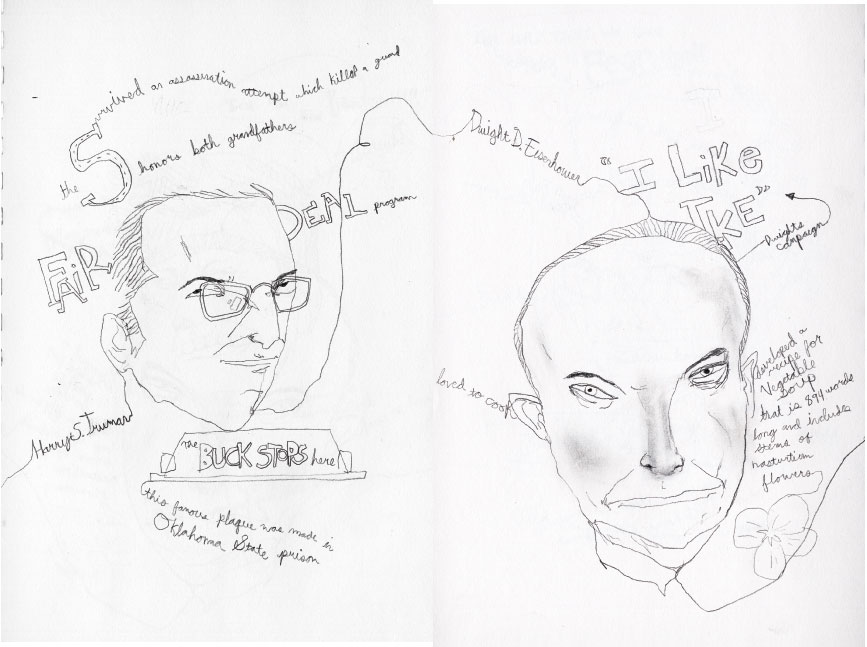 Survived an assassination attempt which killed a guard
the S honors both grandfathers
FAIR DEAL program
Harry S. Truman
the BUCK STOPS here
this famous plaque was made in
Oklahoma State prison
Dwight D. Eisenhower
"I LiKe
IKE"
Dwights
campaign
loved to cook
developed a
recipe for
Vegetable
Soup
that is 894 words
long and includes
stems of
nasturtium
flowers